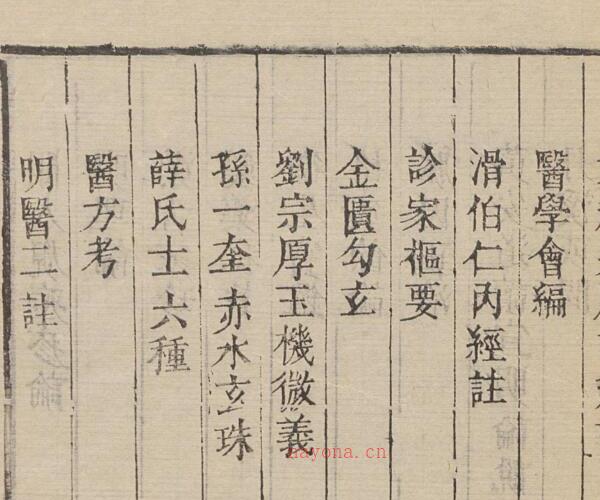 醫學會編
滑伯仁內經註
診家樞要
金匱勾玄
劉宗厚玉機微義
孫一奎赤水玄珠
薛氏士六種
醫方考
明醫二註
nayona.cn